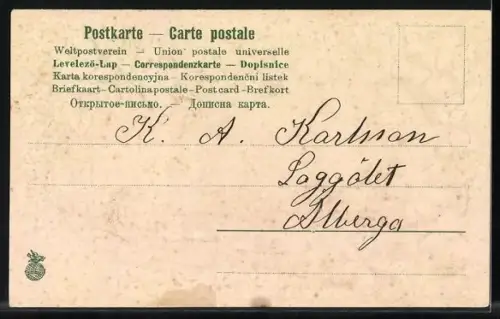 Postkarte — Carte postale
Weltpostverein — Union postale universelle
Levelező-Lap — Correspondenzkarte — Dopisnice
Karta korespondencyjna - Korespondenční listek
Briefkaart - Cartolina postale - Post card - Brefkort
Открытое-письмо. — Дописна карта.
K. A. Karlsson
Laggölet
Ålberga